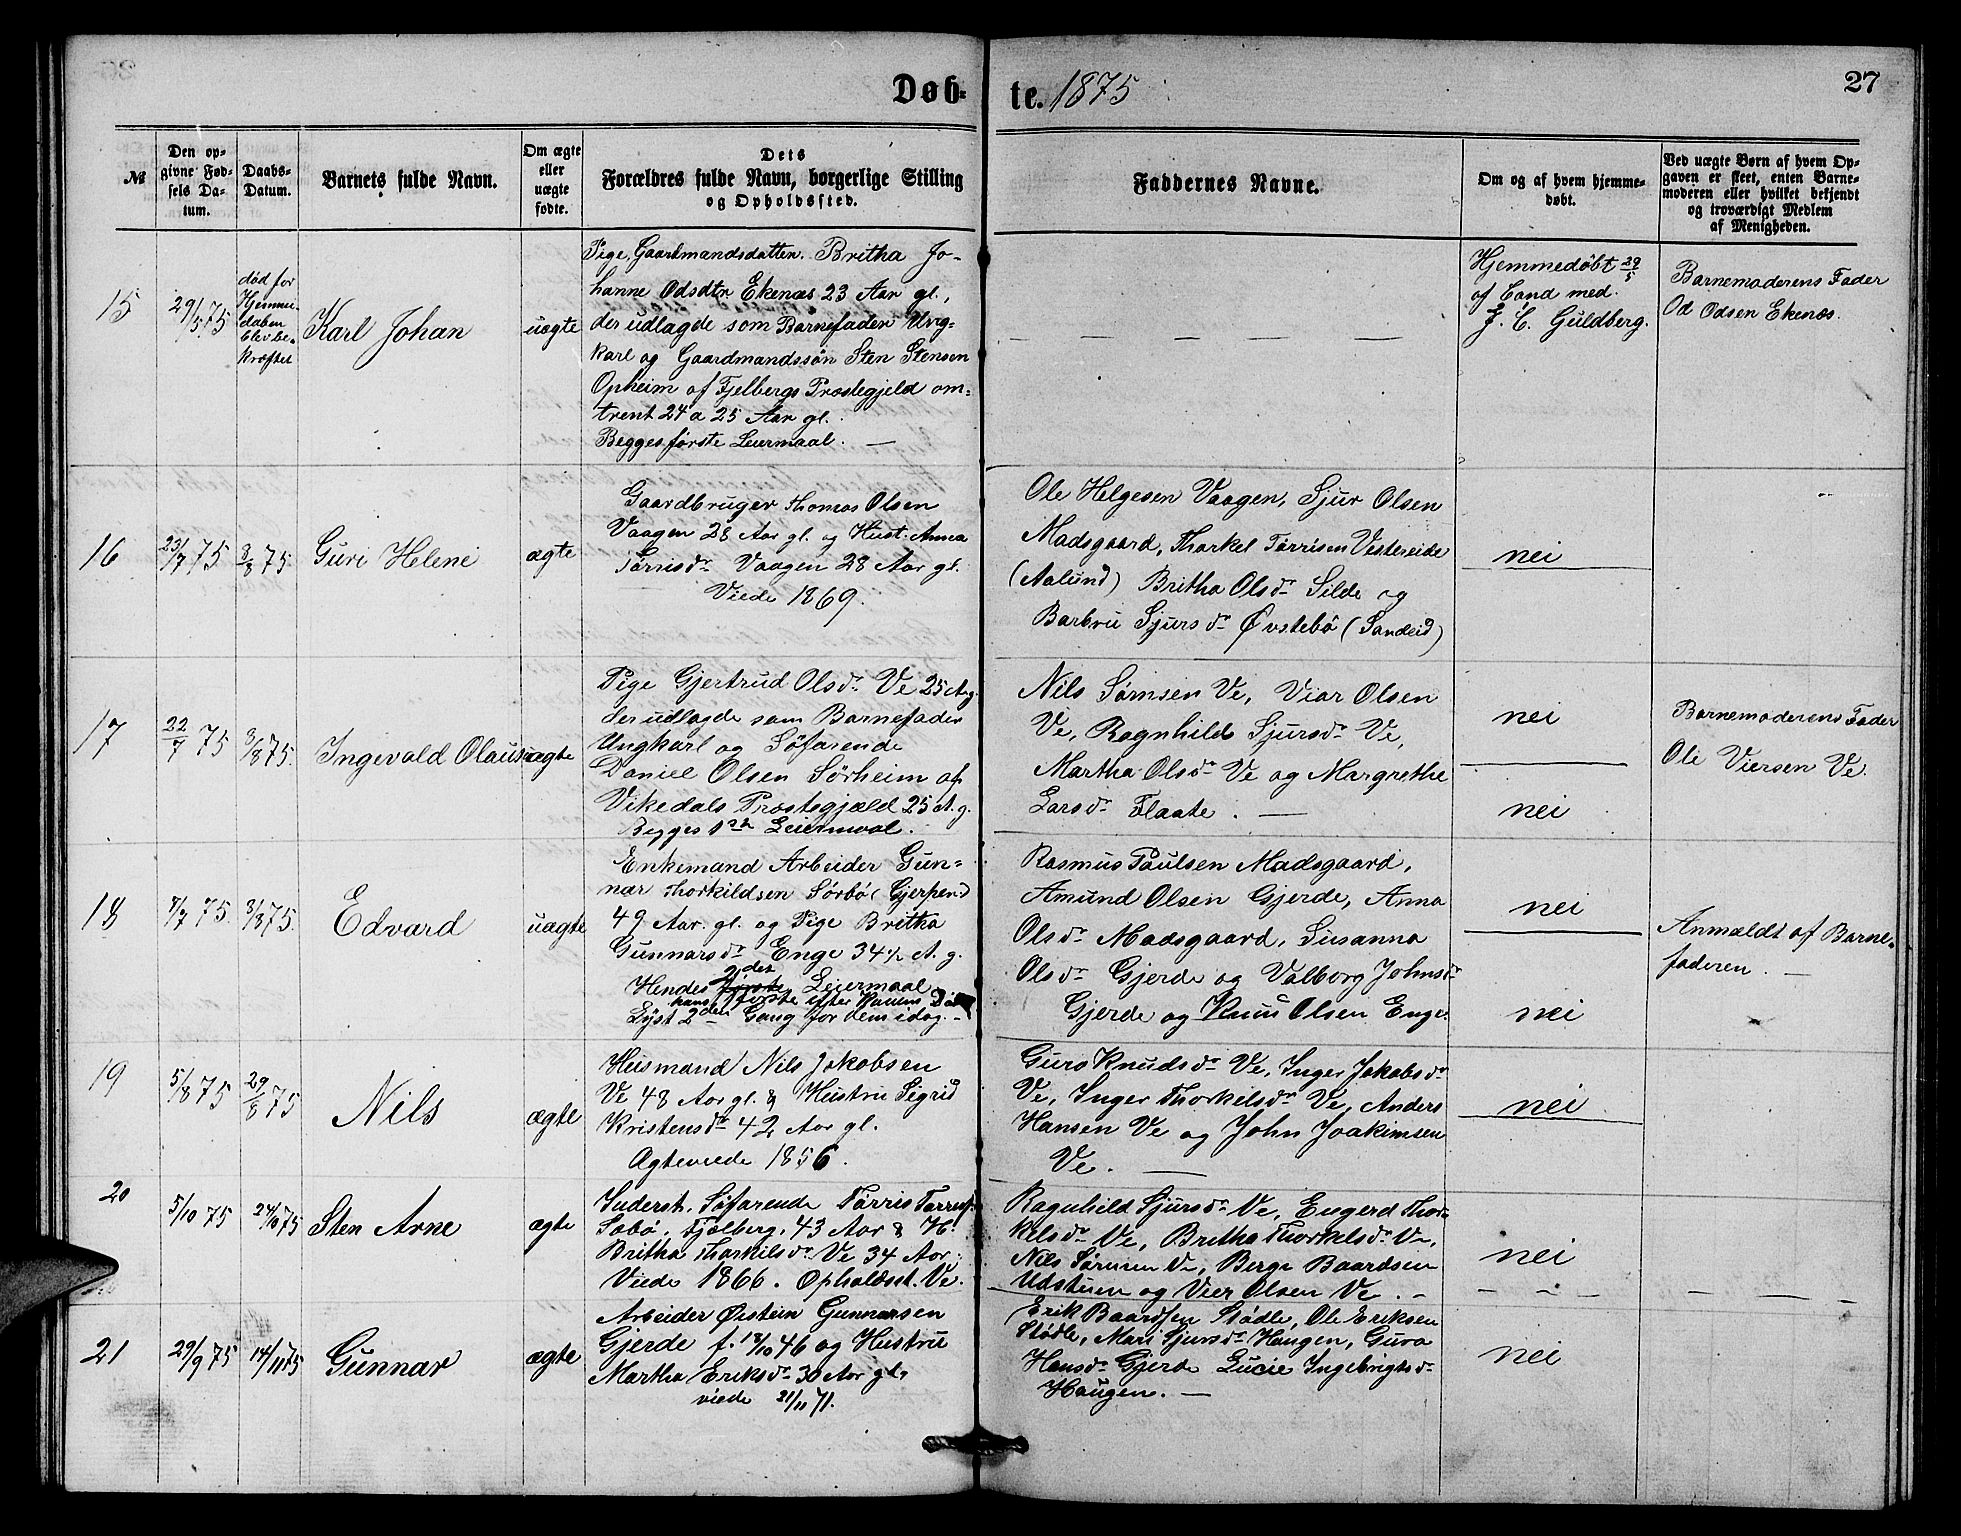 Døb-
te. 1875
27
№
Den op-
givne Fød-
sels Da-
tum.
Daabs-
Datum.
Barnets fulde Navn.
Om ægte
eller
uægte
fødte.
Dets
Forældres fulde Navn, borgerlige Stilling
og Opholdssted.
Faddernes Navne.
Om og af hvem hjemme-
døbt.
Ved uægte Børn af hvem Op-
gaven er skeet, enten Barne-
moderen eller hvilket bekjendt
og troværdigt Medlem
af Menigheden.
15
29/5 75
død før
Hjemme-
daben
blev be-
kræftet
Karl Johan
uægte
Pige, Gaardmandsdatter. Britha Jo-
hanne Odsdtr Ekenæs 23 Aar gl.,
der udlagde som Barnefader Ung-
karl og Gaardmandssøn Sten Stensen
Opheim af Fjelbergs Præstegjeld om-
trent 24 a 25 Aar gl.
Begges første Leiermaal. —
Hjemmedøbt 29/5
af Cand med.
J. C. Guldberg.
Barnemoderens Fader
Od Odsen Ekenæs.
16
23/7 75
8/8 75
Guri Helene
ægte
Gaardbruger Thomas Olsen
Vaagen 28 Aar gl. og Hust. Anna
Tørrisdr Vaagen 28 Aar gl.
Viede 1869.
Ole Helgesen Vaagen, Sjur Olsen
Madsgaard, Thorkel Tørrisen Vestereide
(Aalund) Britha Olsdr Silde og
Barbru Sjursdr Øvstebø (Sandeid)
nei
17
22/7 75
8/8 75.
Ingevald Olaus
uægte
Pige Gjertrud Olsdr Ve 25 A. g.
der udlagde som Barnefader
Ungkarl og Søfarende
Daniel Olsen Sørheim af
Vikedals Præstegjæld 25 A. g.
Begges 1ste Leiermaal.
Nils Sørnsen Ve, Viar Olsen
Ve, Ragnhild Sjursdr Ve,
Martha Olsdr Ve og Margrethe
Larsdr Flaate. —
nei
nei
Barnemoderens Fader
Ole Viersen Ve.
18
7/7 75.
3/8 75.
Edvard
uægte
Enkemand Arbeider Gun-
nar Thorkildsen Sørbø (Gjerpen)
49 Aar. gl. og Pige Britha
Gunnarsdr Enge 34 1/2 A. g.
Hendes 2det første Leiermaal
hans første efter Konens Dø
Lyst 2den Gang for dem idag. -
Rasmus Paulsen Madsgaard,
Amund Olsen Gjerde, Anna
Olsdr Madsgaard, Susanna
Olsdr Gjerde og Valborg Johnsdr
Gjerde og Knud Olsen Enge.
nei
nei
Anmældt af Barne-
faderen. —
19
5/8 75
29/8 75
Nils
ægte
Husmand Nils Jakobsen
Ve 48 Aar gl. & Hustru Sigrid
Kristensdr 42 Aar gl.
Ægteviede 1856.
Guro Knudsdr Ve, Inger Jakobsdr
Ve, Inger Thorkelsdr Ve, Anders
Hansen Ve og John Joakimsen
Ve. —
nei
20
5/10 75
24/10 75
Sten Arne
ægte
Inderst, Søfarende Tørris
Sæbø, Fjelberg, 43 Aar & H.
Britha Thorkilsdr Ve 34 Aar.
Viede 1866. Opholdsst. Ve.
Ragnhild Sjursdr Ve, Engerd Thor-
kelsdr Ve, Britha Thorkelsdr Ve,
Nils Sørnsen Ve, Berge Baardsen
Udstuen og Vier Olsen Ve. -
nei
21
29/9 75
14/11 75
Gunnar
ægte
Arbeider Øistein Gunnarsen
Gjerde f. 18/10 46 og Hustru
Martha Eriksdr 30 Aar gl,
viede 21/11 71.
Erik Baardsen Stødle, Ole Eriksen
Stødle, Mari Sjursdr Haugen, Guro
Hansdr Gjerde Lucie Ingebrigtsdr
Haugen. —
nei